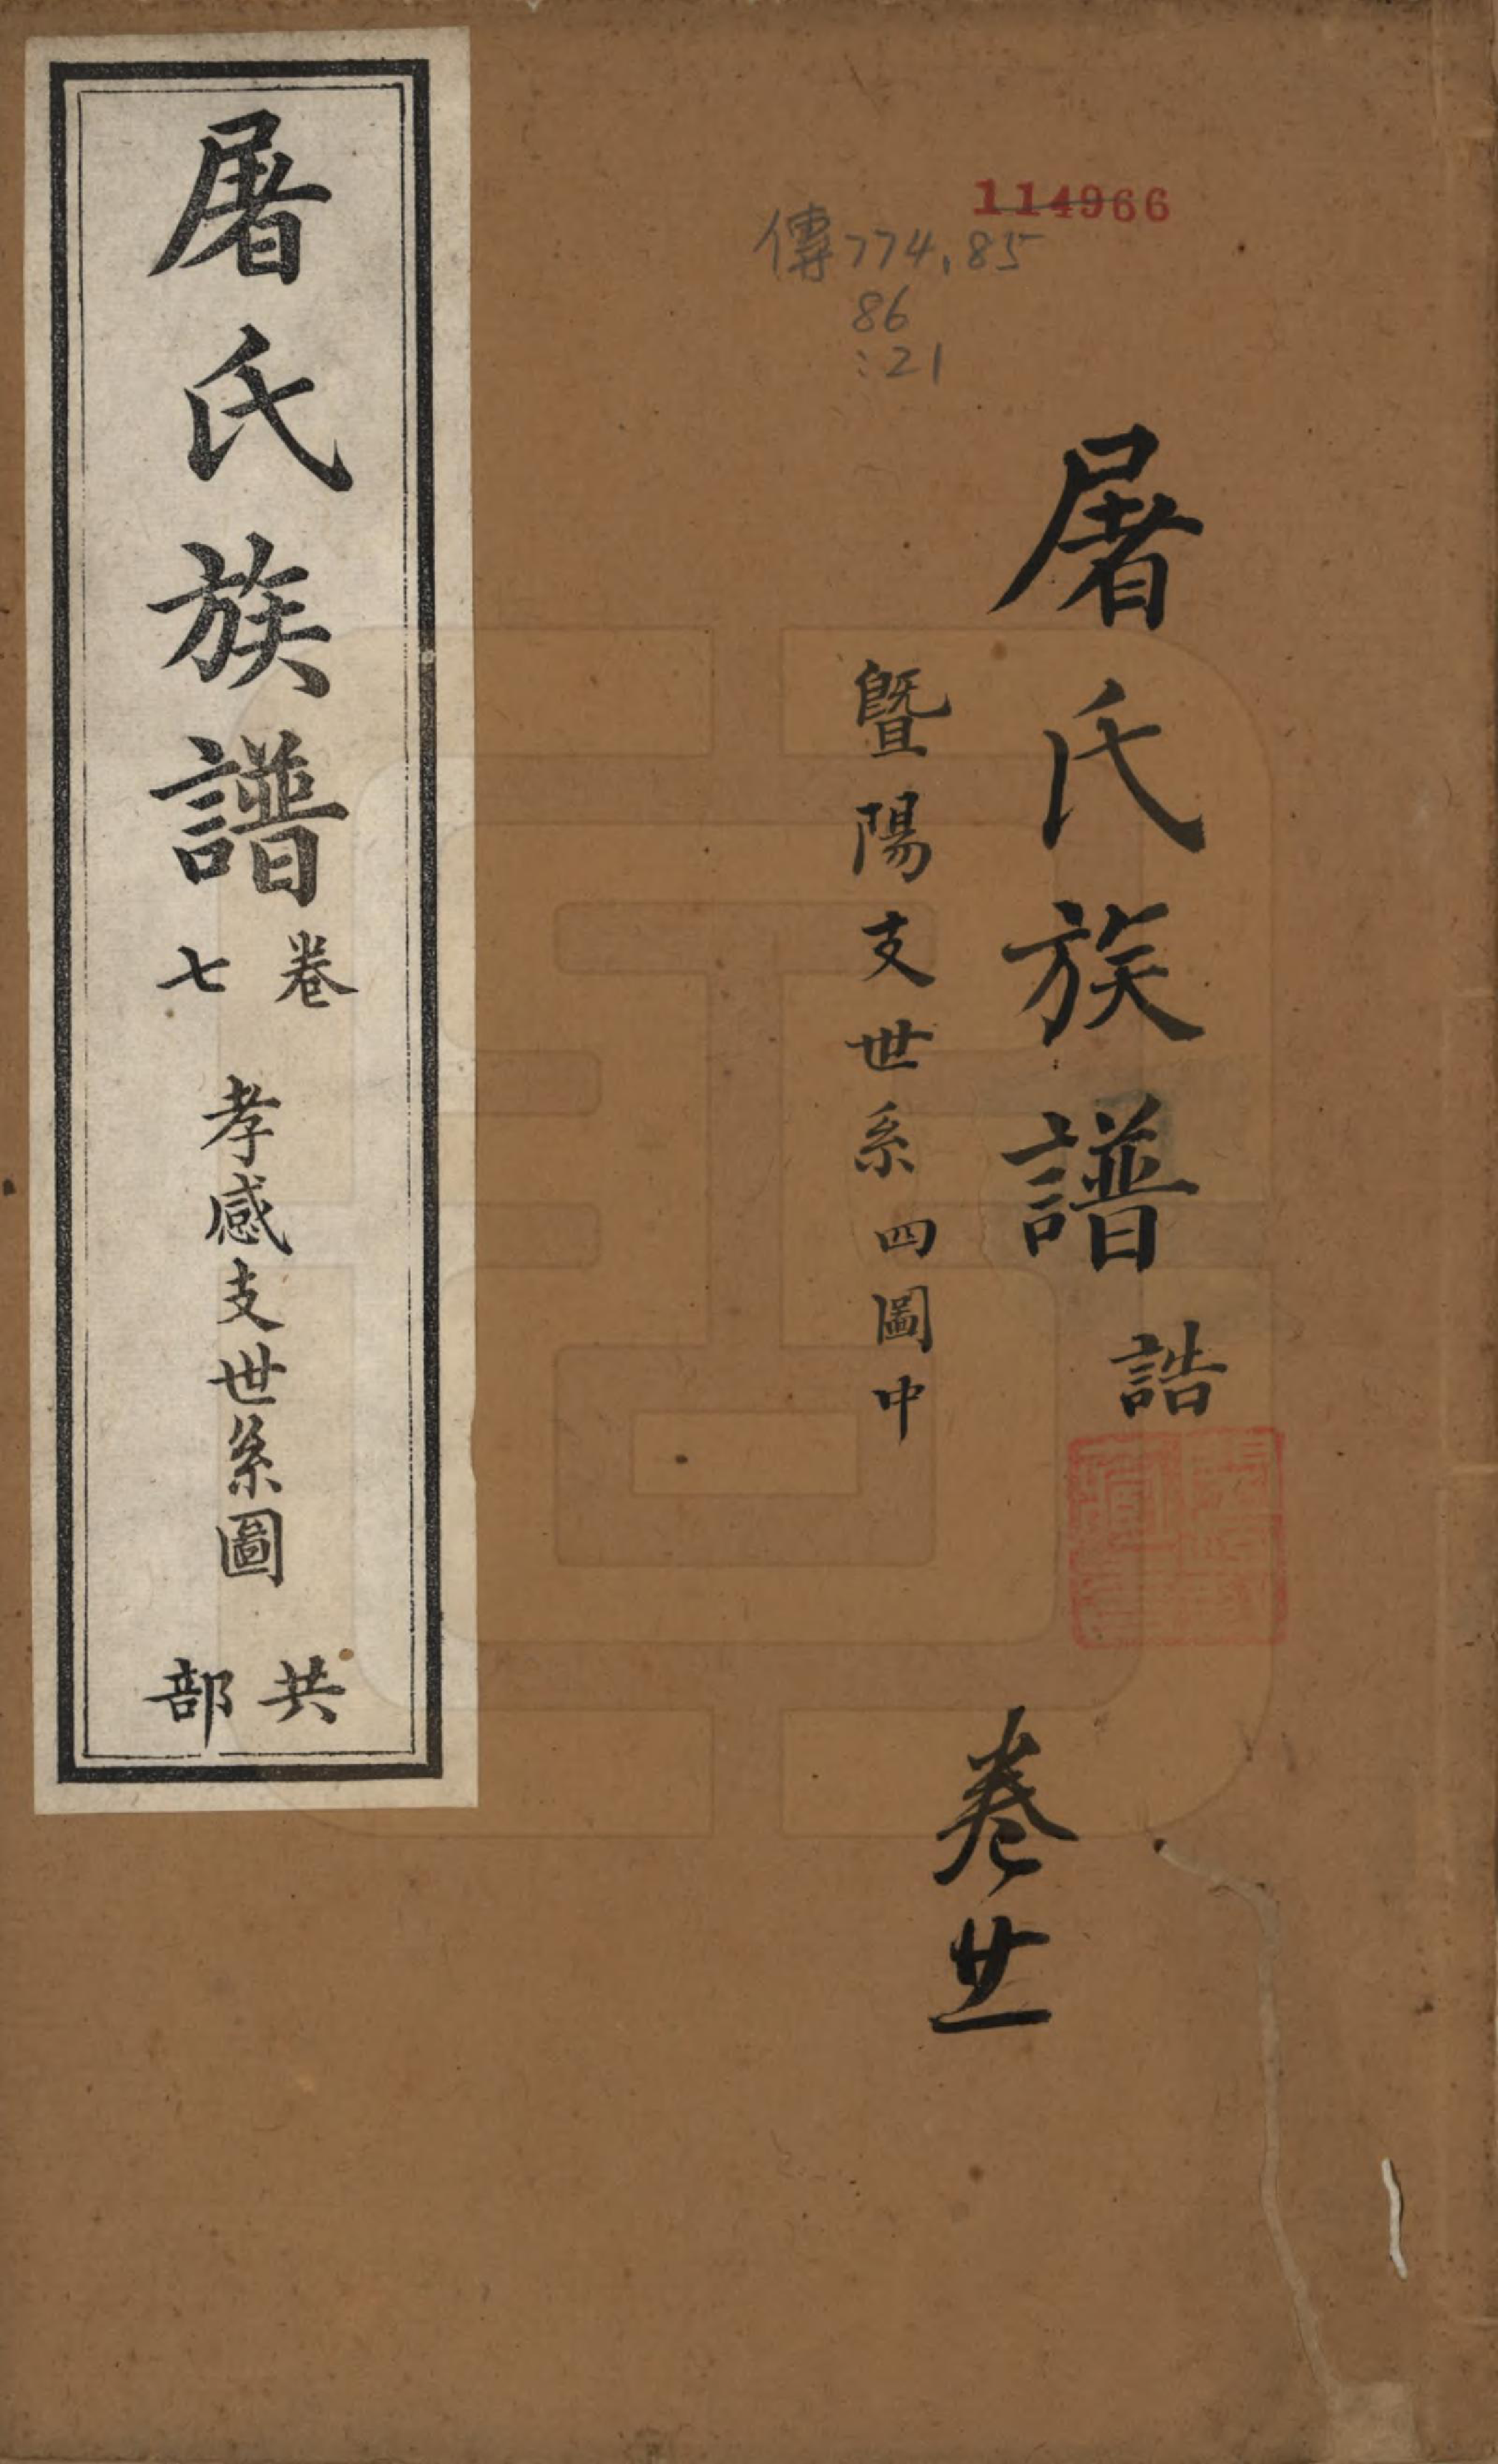 114966
傳774.85
86
:21
屠氏族譜 誥
暨陽支世系四圖中
卷廿一
屠氏族譜 卷七 孝感支世系圖 共部